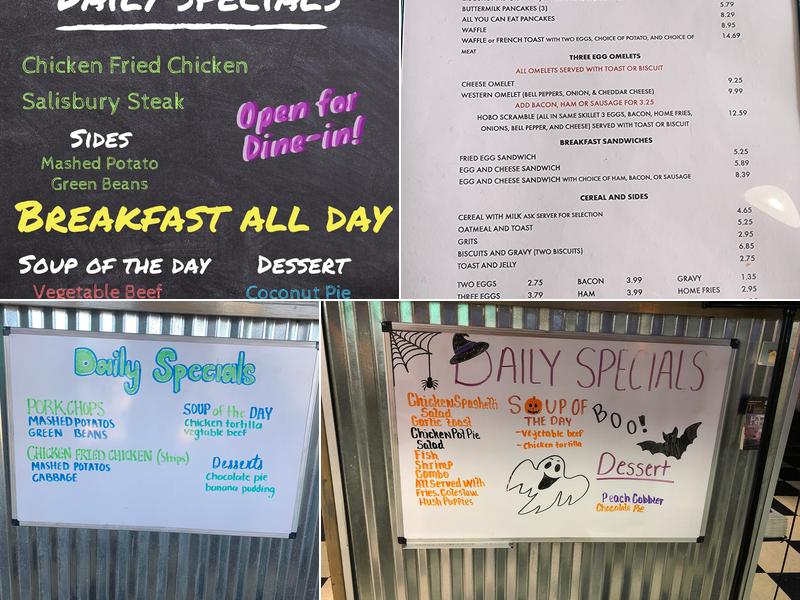 DAILY SPECIALS
Chicken Fried Chicken
Salisbury Steak
Open for
Dine-in!
SIDES
Mashed Potato
Green Beans
BREAKFAST ALL DAY
SOUP OF THE DAY
Vegetable Beef
DESSERT
Coconut Pie
BUTTERMILK PANCAKES (3) 5.79
ALL YOU CAN EAT PANCAKES 8.29
WAFFLE 8.95
WAFFLE or FRENCH TOAST WITH TWO EGGS, CHOICE OF POTATO, AND CHOICE OF 14.69
MEAT
THREE EGG OMELETS
ALL OMELETS SERVED WITH TOAST OR BISCUIT
CHEESE OMELET 9.25
WESTERN OMELET (BELL PEPPERS, ONION, & CHEDDAR CHEESE) 9.99
ADD BACON, HAM OR SAUSAGE FOR 3.25
HOBO SCRAMBLE (ALL IN SAME SKILLET 3 EGGS, BACON, HOME FRIES, 12.59
ONIONS, BELL PEPPER, AND CHEESE) SERVED WITH TOAST OR BISCUIT
BREAKFAST SANDWICHES
FRIED EGG SANDWICH 5.25
EGG AND CHEESE SANDWICH 5.89
EGG AND CHEESE SANDWICH WITH CHOICE OF HAM, BACON, OR SAUSAGE 8.39
CEREAL AND SIDES
CEREAL WITH MILK ASK SERVER FOR SELECTION 4.65
OATMEAL AND TOAST 5.25
GRITS 2.95
BISCUITS AND GRAVY (TWO BISCUITS) 6.85
TOAST AND JELLY 2.75
TWO EGGS 2.75 BACON 3.99 GRAVY 1.35
THREE EGGS 3.79 HAM 3.99 HOME FRIES 2.95
Daily Specials
PORK CHOPS
MASHED POTATOS
GREEN BEANS
CHICKEN FRIED CHICKEN (Strips)
MASHED POTATOS
CABBAGE
SOUP of the DAY
chicken tortilla
vegtable beef
Desserts
Chocolate pie
banana pudding
DAILY SPECIALS
Chicken Spaghetti
Salad
Garlic toast
Chicken Pot Pie
Salad
Fish
Shrimp
Combo
All Served with
Fries, Coleslaw
Hush Puppies
SOUP OF
THE DAY
-vegetable beef
-chicken tortilla
BOO!
Dessert
Peach Cobbler
Chocolate Pie